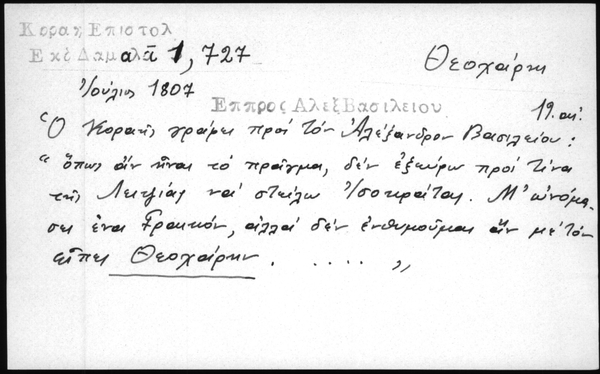 Κοραη Επιστολ
Εκδ Δαμαλᾶ 1, 727
Θεοχάρη
Ἰούλιος 1807
Επ προς Αλεξ Βασιλειου
19.
"Ὁ Κοραῆς γράφει πρὸς τὸν Ἀλέξανδρον Βασιλείου:
"ὅπως ἂν ᾖναι τὸ πρᾶγμα, δὲν ἐξεύρω πρὸς τίνα
τῆς Λειψίας νὰ στείλω Ἰσοκράτας. Μ' ὠνόμα-
σες ἕνα Γραικόν, ἀλλὰ δὲν ἐνθυμοῦμαι ἂν μὲ τὸν
εἶπες Θεοχάρην . . . . . . "